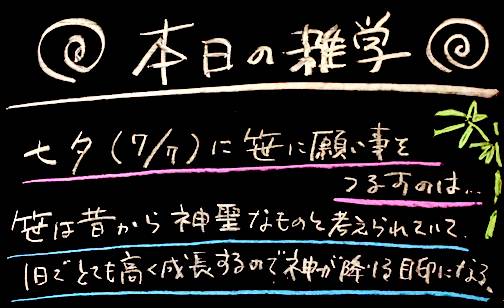 本日の雑学
七夕(7/7)に笹に願い事を
つるすのは…
笹は昔から神聖なものと考えられていて、
1日でとても高く成長するので神が降りる目印になる。